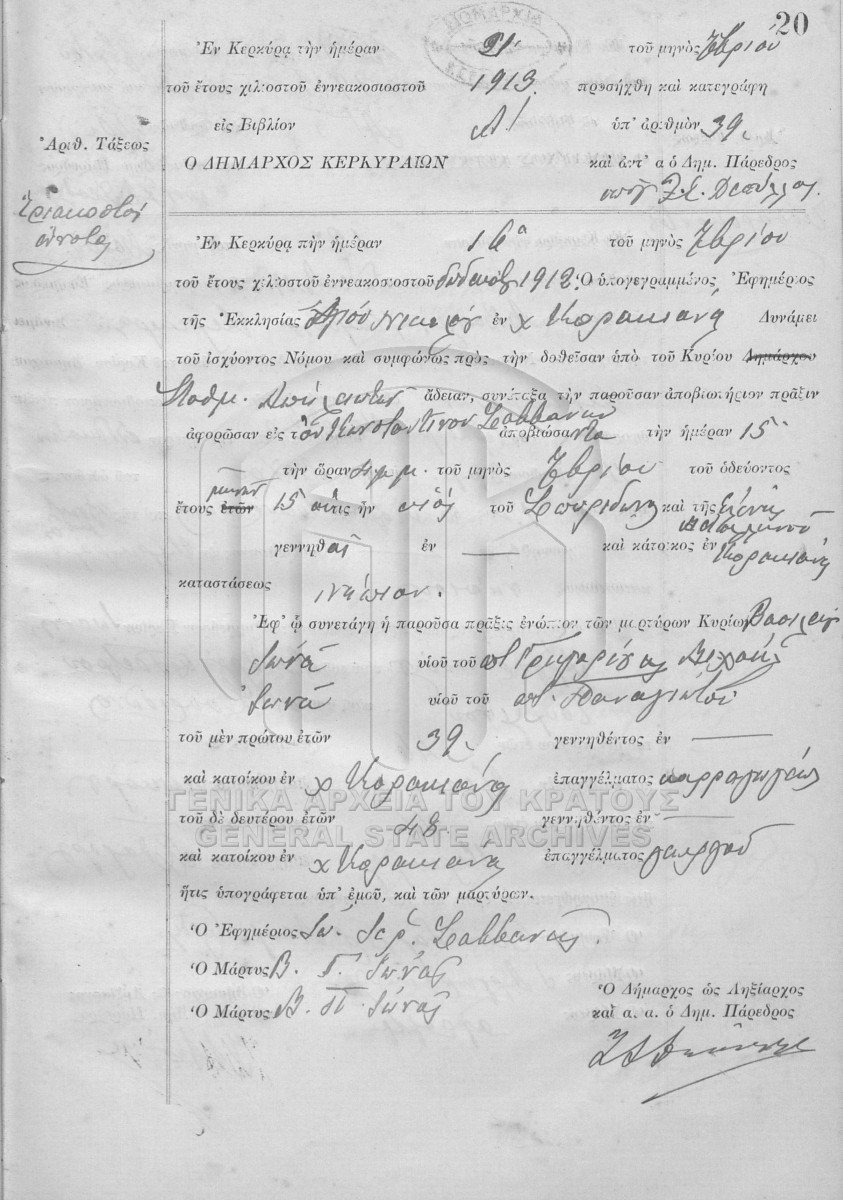 20
Ἐν Κερκύρᾳ τὴν ἡμέραν 31 τοῦ μηνὸς
τοῦ ἔτους χιλιοστοῦ ἐννεακοσιοστοῦ 1913 προσήχθη καὶ κατεγράφη
εἰς Βιβλίον Α! ὑπ' ἀριθμὸν 39
Ἀριθ. Τάξεως
Ο ΔΗΜΑΡΧΟΣ ΚΕΡΚΥΡΑΙΩΝ καὶ ἀντ' α ὁ Δημ. Πάρεδρος
Ἐν Κερκύρᾳ πὴν ἡμέραν 16 τοῦ μηνὸς Ζβρίου
τοῦ ἔτους χιλιοστοῦ ἐννεακοσιοστοῦ 1912 Ὁ ὑπογεγραμμένος Ἐφημέριος
τῆς Ἐκκλησίας Ἁγίου ἐν χ Κορακιανᾷ Δυνάμει
τοῦ ἰσχύοντος Νόμου καὶ συμφώνως πρὸς τὴν δοθεῖσαν ὑπὸ τοῦ Κυρίου Δημάρχου
ἄδειαν, συνέταξα τὴν παροῦσαν ἀποβιωτήριον πρᾶξιν
ἀφορῶσαν εἰς τὸν Κωνσταντῖνον Σαββανῆν ἀποβιώσαντα τὴν ἡμέραν 15
τὴν ὥραν 4 μμ. τοῦ μηνὸς Ζβρίου τοῦ ὁδεύοντος
μηνῶν
ἔτους ἐτῶν 15 ὅστις ἦν υἱὸς τοῦ Σπυρίδωνος καὶ τῆς
γεννηθεὶς ἐν — καὶ κάτοικος ἐν Κορακιάνᾳ
καταστάσεως νήπιον.
Ἐφ' ᾧ συνετάγη ἡ παροῦσα πρᾶξις ἐνώπιον τῶν μαρτύρων Κυρίων Βασιλείου
Ἰωνᾶ υἱοῦ τοῦ π. Γρηγορίου καὶ
Ἰωνᾶ υἱοῦ τοῦ π. Παναγιώτου
τοῦ μὲν πρώτου ἐτῶν 39 γεννηθέντος ἐν —
καὶ κατοίκου ἐν χ Κορακιάνᾳ ἐπαγγέλματος καρραγωγέως
ΓΕΝΙΚΑ ΑΡΧΕΙΑ ΤΟΥ ΚΡΑΤΟΥΣ
τοῦ δὲ δευτέρου ἐτῶν 48 γεννηθέντος ἐν —
GENERAL STATE ARCHIVES
καὶ κατοίκου ἐν χ Κορακιάνᾳ ἐπαγγέλματος γεωργοῦ
ἥτις ὑπογράφεται ὑπ' ἐμοῦ, καὶ τῶν μαρτύρων.
Ὁ Ἐφημέριος Ἰω. Ἱερ. Σαββανῆς.
Ὁ Μάρτυς Β. Γ. Ἰωνᾶς
Ὁ Μάρτυς Β. Π. Ἰωνᾶς
Ὁ Δήμαρχος ὡς Ληξίαρχος
καὶ α. α. ὁ Δημ. Πάρεδρος